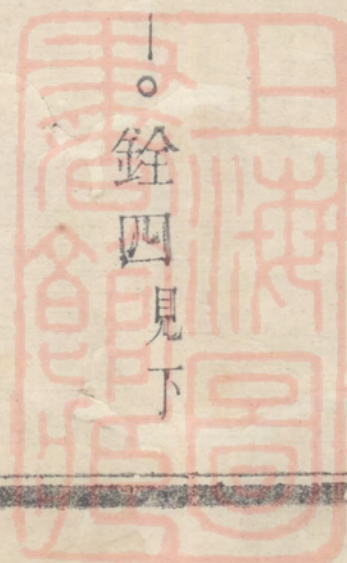 ｜。銓四見下
上海圖書館藏